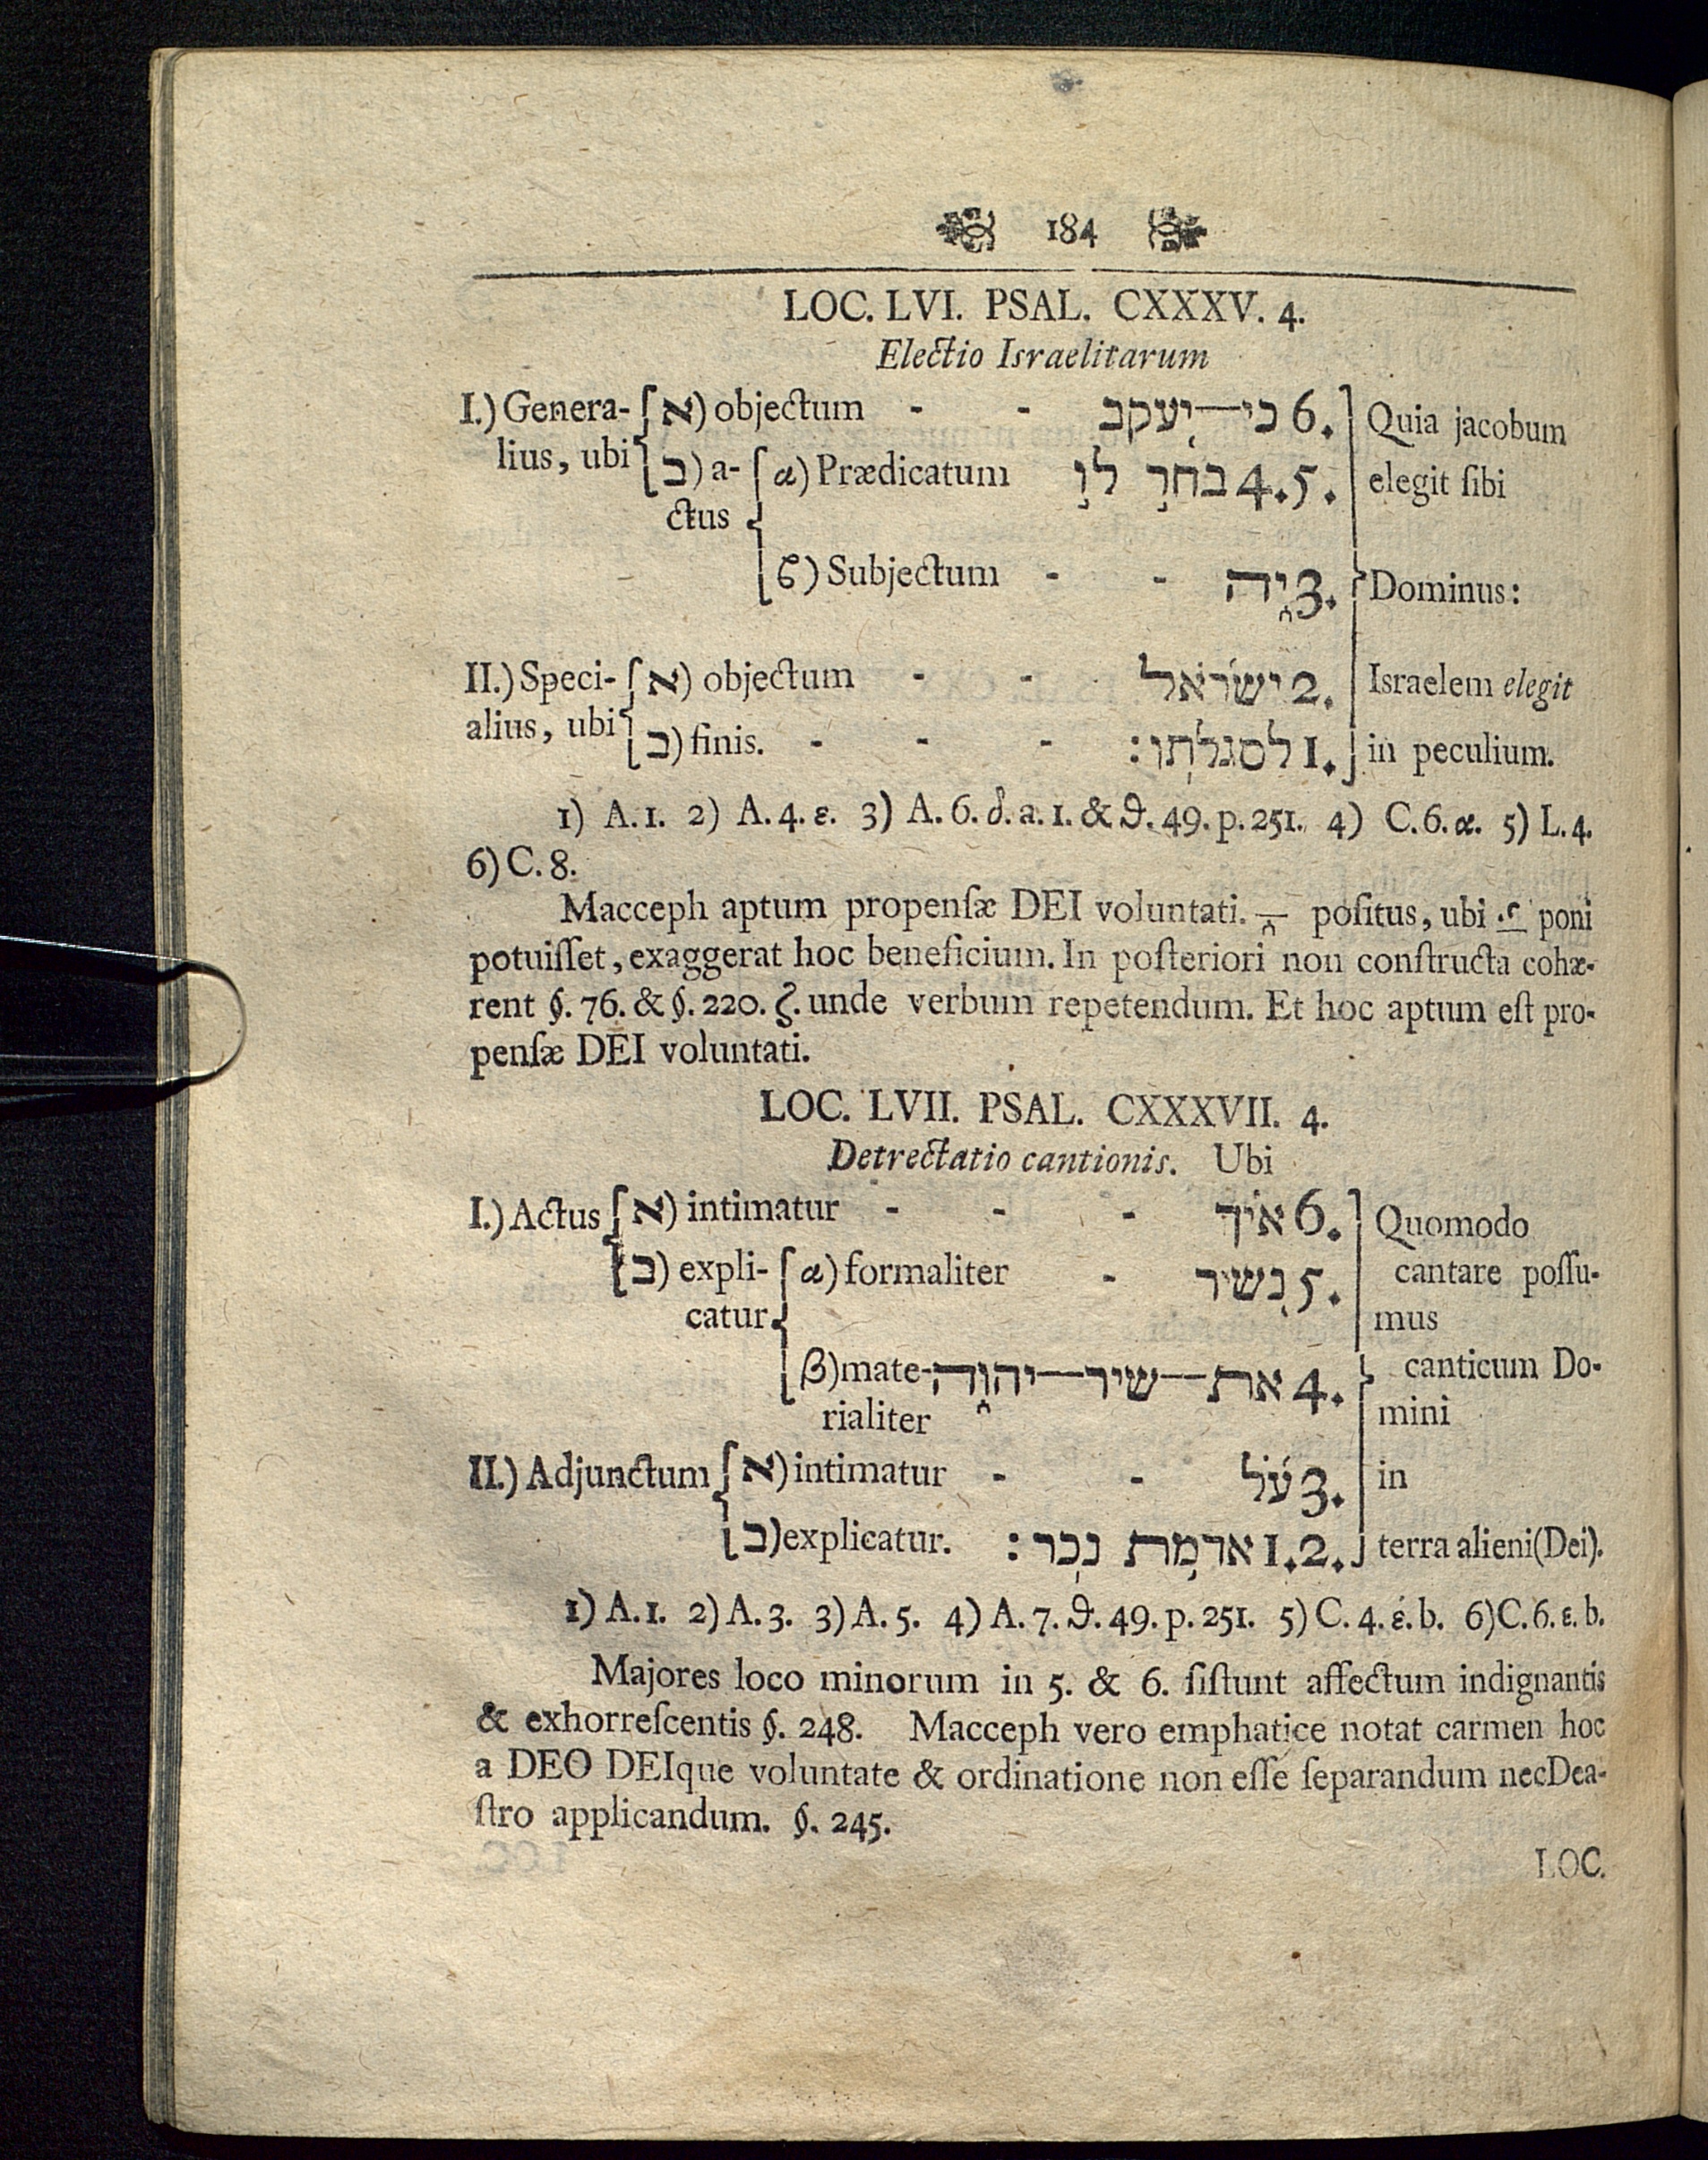 184
LOC. LVI. PSAL. CXXXV. 4.
Electio Israelitarum
I.) Genera- א) objectum - - כי—יעקב 6. Quia jacobum
lius, ubi ב) a- α) Prædicatum בחר לו 4.5. elegit ſibi
ctus
ϐ) Subjectum - - יה 3. Dominus:
II.) Speci- א) objectum - - ישראל 2. Israelem elegit
alius, ubi ב) finis. - - - לסגלתו: 1. in peculium.
1) A. 1. 2) A. 4. ε. 3) A. 6. δ. a. 1. & ϑ. 49. p. 251. 4) C. 6. α. 5) L. 4.
6) C. 8.
Macceph aptum propenſæ DEI voluntati. poſitus, ubi poni
potuiſſet, exaggerat hoc beneficium. In poſteriori non conſtructa cohæ-
rent §. 76. & §. 220. ζ. unde verbum repetendum. Et hoc aptum eſt pro-
penſæ DEI voluntati.
LOC. LVII. PSAL. CXXXVII. 4.
Detrectatio cantionis. Ubi
I.) Actus א) intimatur - - - איך 6. Quomodo
ב) expli- α) formaliter - נשיר 5. cantare poſſu-
catur mus
β) mate- את—שיר—יהוה 4. canticum Do-
rialiter mini
II.) Adjunctum א) intimatur - - על 3. in
ב) explicatur. אדמת נכר: 1.2. terra alieni (Dei).
1) A. 1. 2) A. 3. 3) A. 5. 4) A. 7. ϑ. 49. p. 251. 5) C. 4. έ. b. 6) C. 6. ε. b.
Majores loco minorum in 5. & 6. ſiſtunt affectum indignantis
& exhorreſcentis §. 248. Macceph vero emphatice notat carmen hoc
a DEO DEIque voluntate & ordinatione non eſſe ſeparandum nec Dea-
ſtro applicandum. §. 245.
LOC.